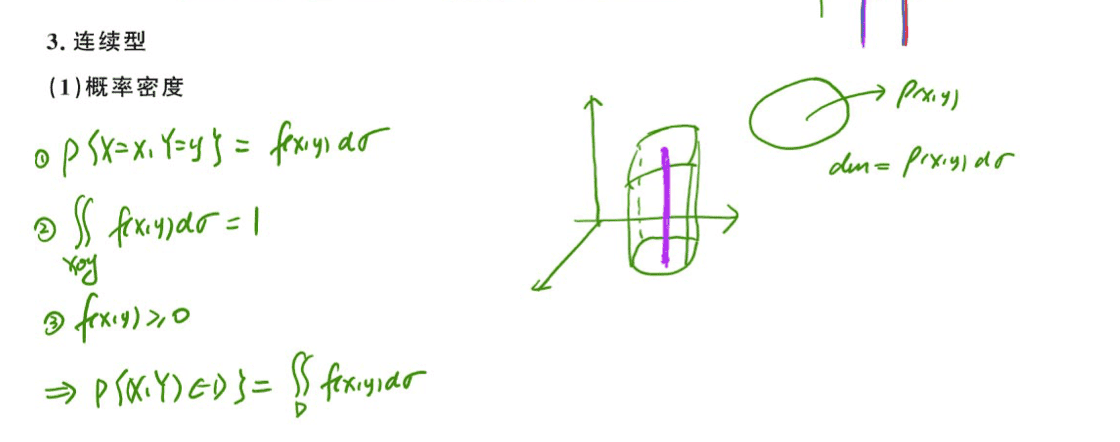 3. 连续型
(1)概率密度
① P{X=x, Y=y} = f(x,y) dσ
② ∬ f(x,y)dσ = 1
xoy
③ f(x,y) ≥ 0
⇒ P{(X,Y)∈D} = ∬ f(x,y)dσ
D
→ ρ(x,y)
dm = ρ(x,y) dσ